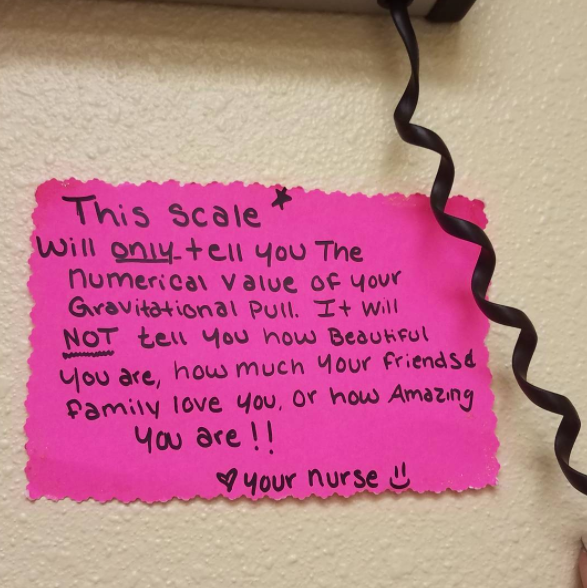 This scale
will only tell you The
numerical value of your
Gravitational Pull. It will
NOT tell you how Beautiful
you are, how much your friends&
family love you, or how Amazing
you are!!
♡ your nurse